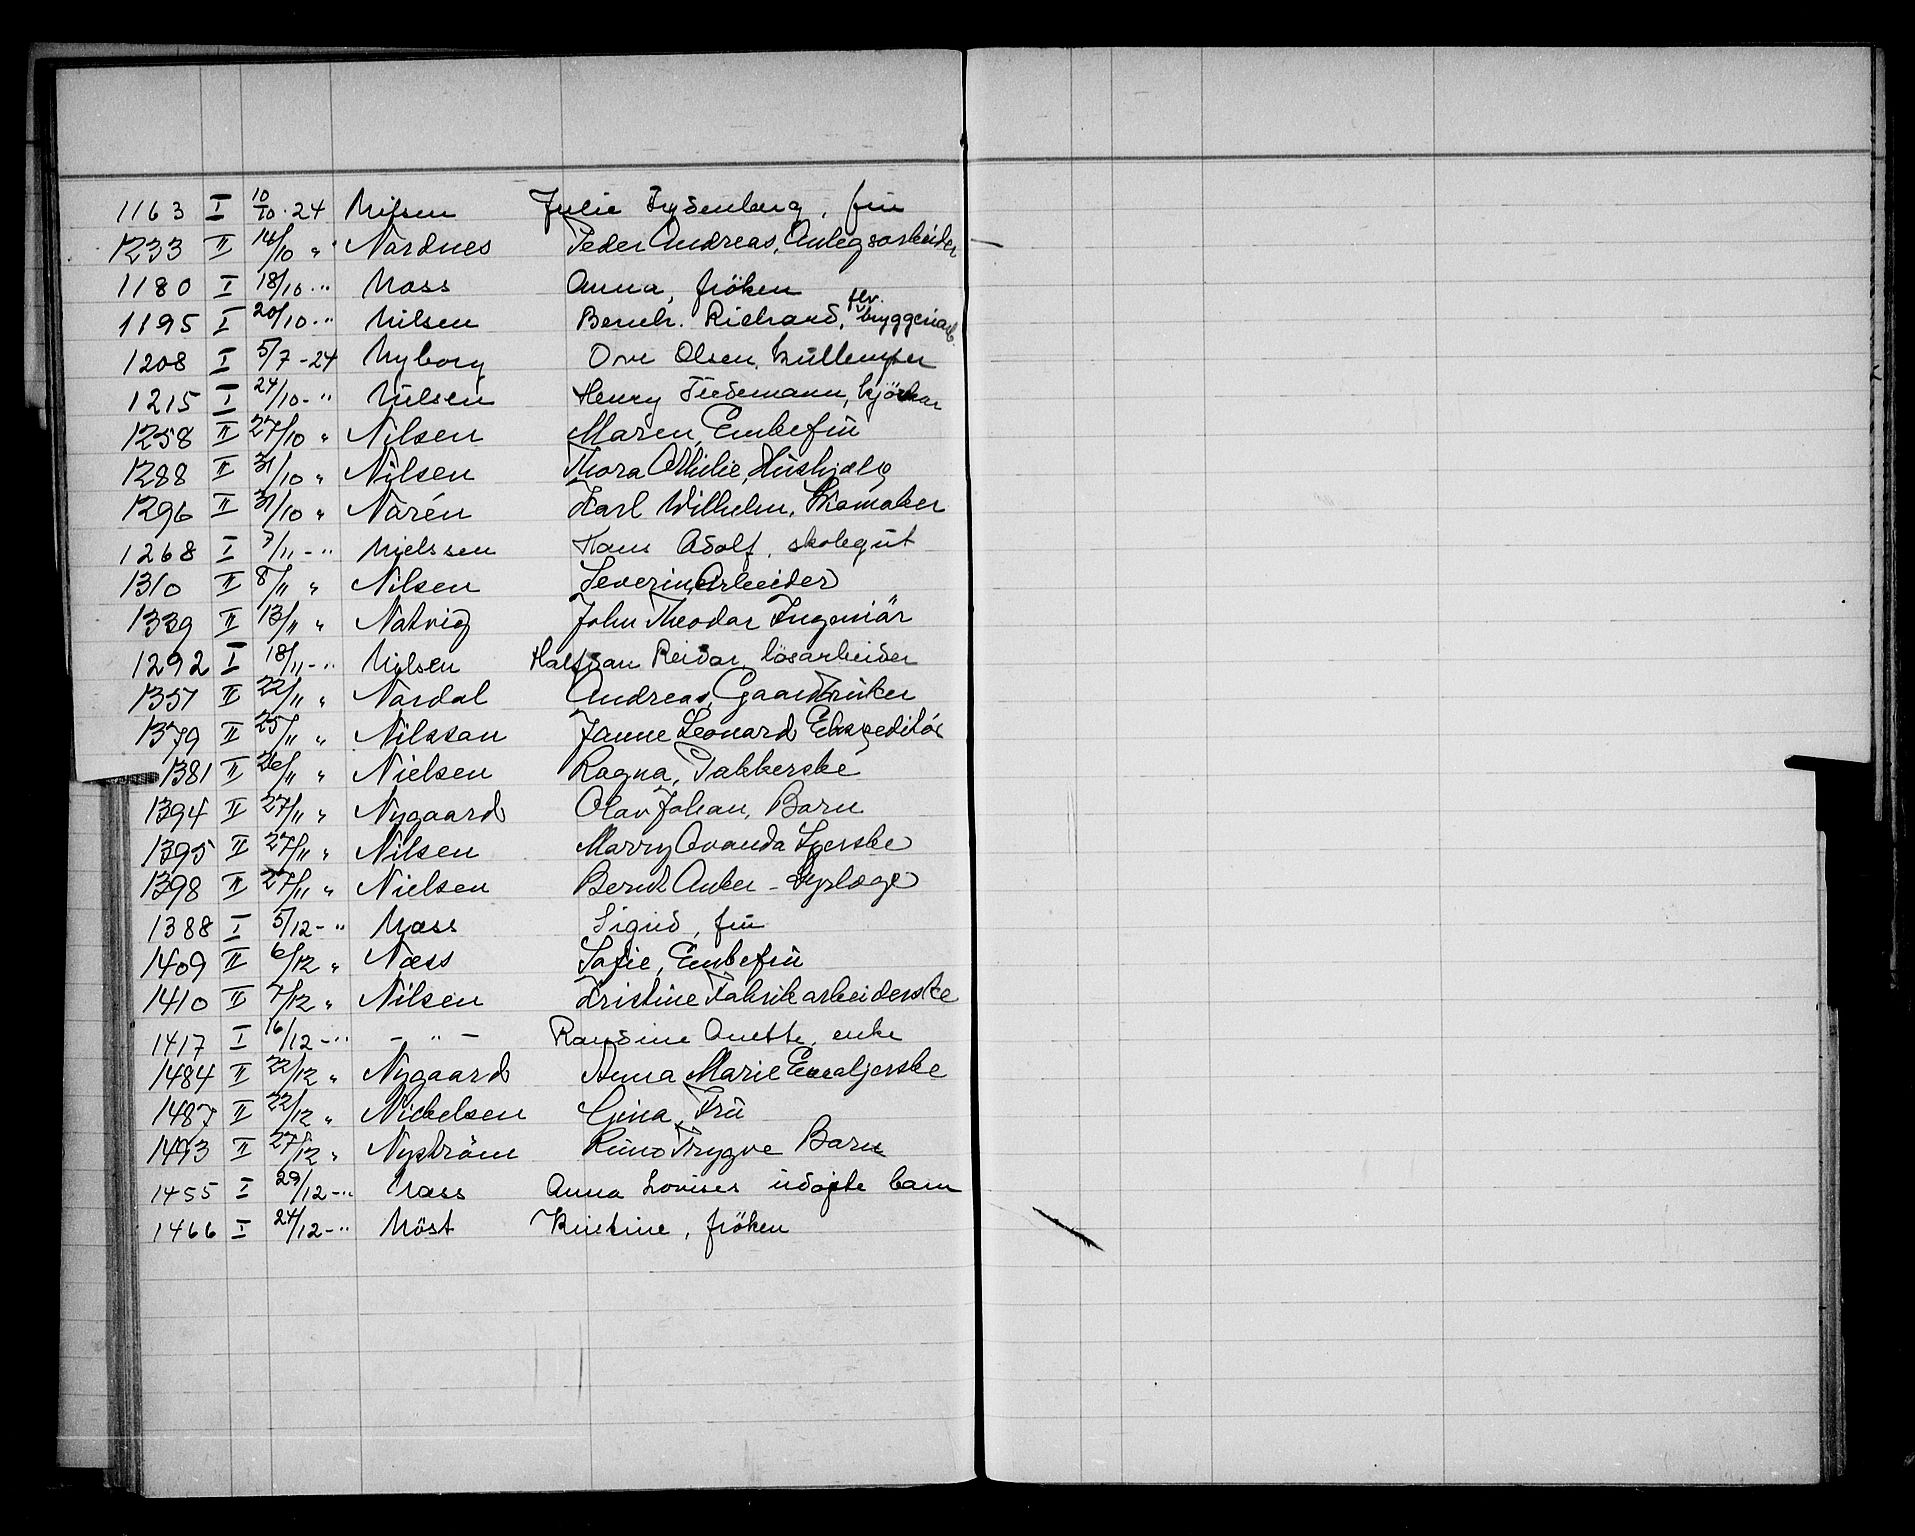 1163 I 10/10 · 24 Nilsen Julie Frydenberg, frü
1233 II 14/10 " Nardnes Peder Andreas, Anlegsarbeider
1180 I 18/10 - " Næss Anna, fröken
1195 I 20/10 - " Nilsen Bernh. Richard, flv. bryggeriarb.
1208 I 5/7 - 24 Nyborg Ove Olsen,
1215 I 24/10 - " Nilsen Henry Tidemann,
1258 II 27/10 " Nilsen Maren, Enkefrü
1288 II 31/10 " Nilsen Thora Othilie, Hüshjælp
1296 II 31/10 " Narén Karl Wilhelm, Skomaker
1268 I 7/11 - " Nielssen Hans Adolf, skolegüt
1310 II 8/11 " Nilsen Severin, Arbeider
1339 II 13/11 " Natvig John Theodor Ingeniör
1292 I 18/11 - " Nilsen Halfdan Reidar, lösarbeider
1357 II 22/11 " Nardal Andreas, Gaardbrüker
1379 II 25/11 " Nilsson Janne Leonard Ekspeditör
1381 II 26/11 " Nielsen Ragna, Pakkerske
1394 II 27/11 " Nygaard Olav Johan, Barn
1395 II 27/11 " Nilsen Marry Ovanda Syerske
1398 II 27/11 " Nielsen Bernt Anker - Dyrlæge
1388 I 5/12 - " Næss Sigrid, frü
1409 II 6/12 " Næss Sofie, Enkefrü
1410 II 7/12 " Nilsen Kristine Fabrikarbeiderske
1417 I 16/12 - " - " - Randine Anette, enke
1484 II 22/12 " Nygaard Anna Marie
1487 II 22/12 " Nickelsen Gina, Frü
1493 II 27/12 " Nyström Rüno Trygve Barn
1455 I 29/12 - " Næss Anna Lovises üdøpte barn
1466 I 24/12 - " Nöst Kristine, fröken